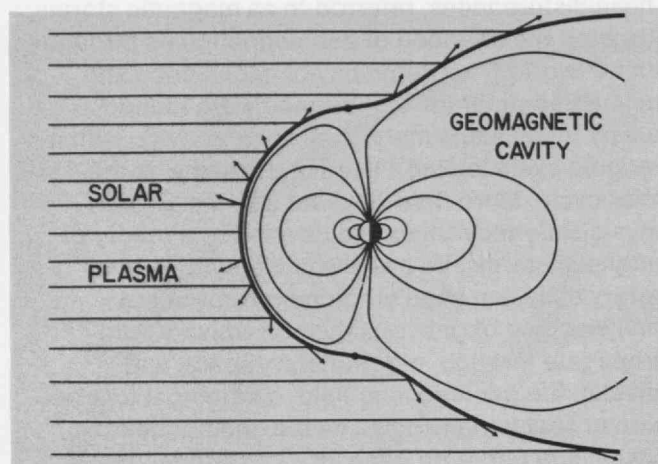 GEOMAGNETIC
CAVITY
SOLAR
PLASMA